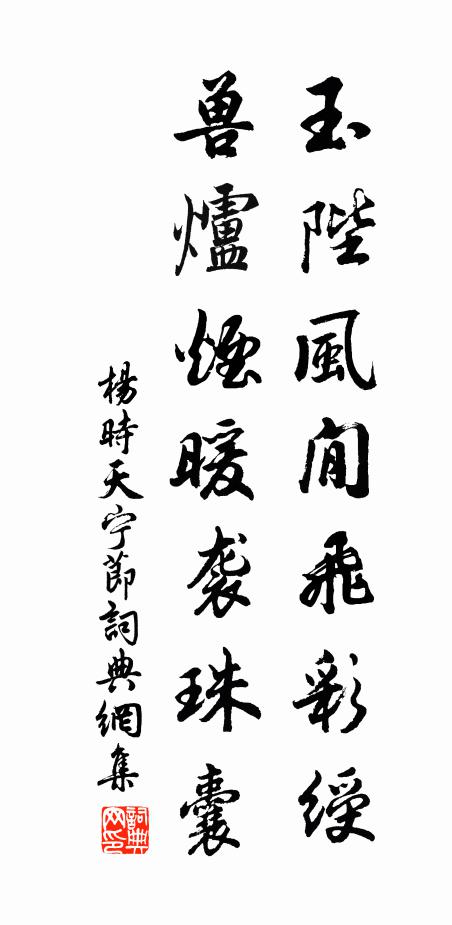 玉陛風閒飛彩綬
兽爐煙暖袭珠囊
楊時天宁節詞典網集
詞典网印